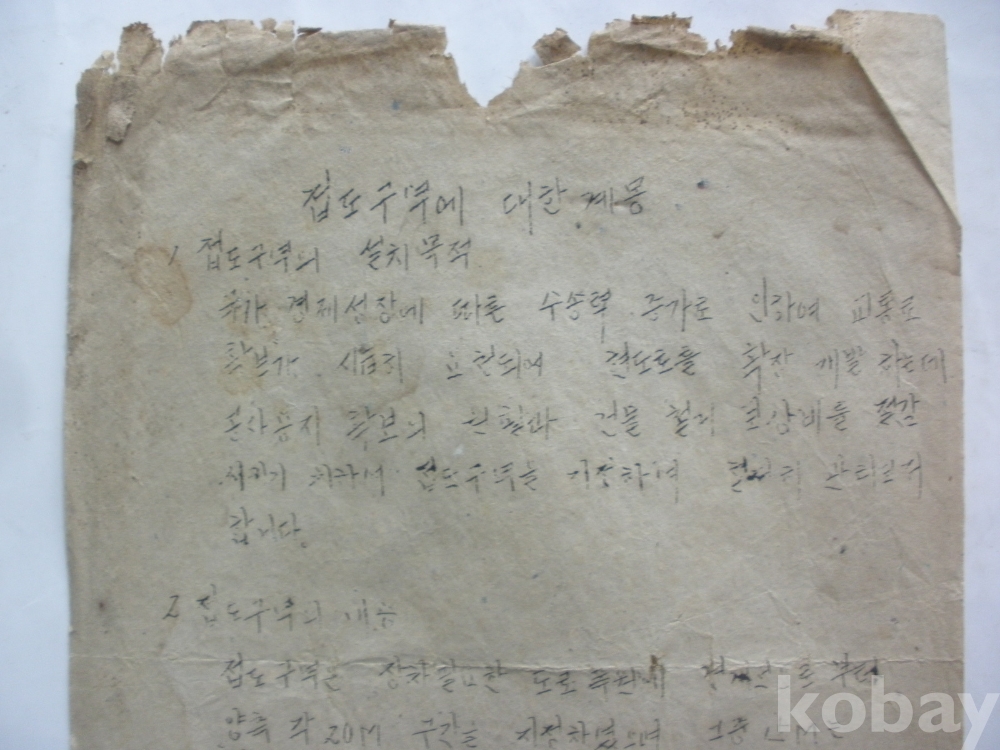 접도구역에 대한 계몽
1 접도구역의 설치목적
국가 경제성장에 따른 수송력 증가로 인하여 교통로
확보가 시급히 요청되어 현도로를 확장 개발 하는데
용지 확보의 원활과 건물 철거 보상비를 절감
시키기 위하여 접도구역을 지정하여 철저히 관리코저
합니다.
2 접도구역의 내용
접도구역은 장차 필요한 도로 폭원에 부터
양측 각 20M 구간을 지정하였으며
kobay